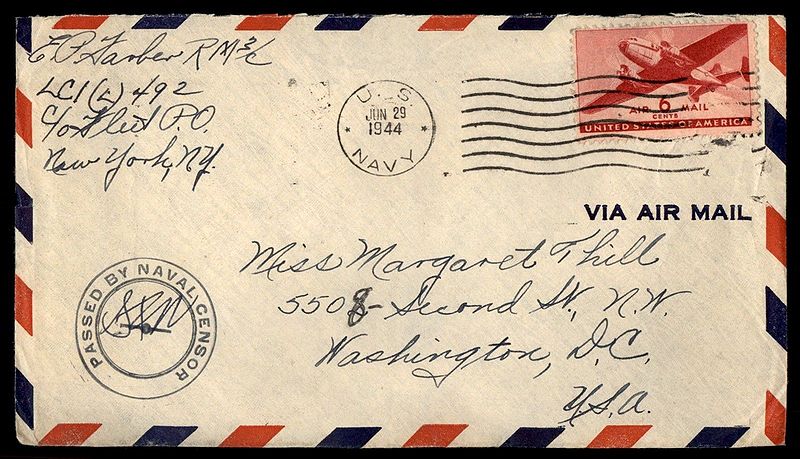 E P Farber RM 3/c
LCI (L) 492
C/o Fleet P.O.
New York, N.Y.
U.S.
JUN 29
1944
NAVY
6
AIR MAIL
CENTS
UNITED STATES OF AMERICA
VIA AIR MAIL
Miss Margaret Thill
5508 Second St., N.W.
Washington, D.C.
U.S.A.
PASSED BY NAVAL CENSOR